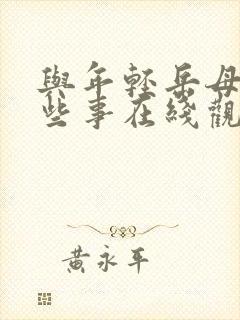 與年輕岳母
些事在綫觀
黃永平